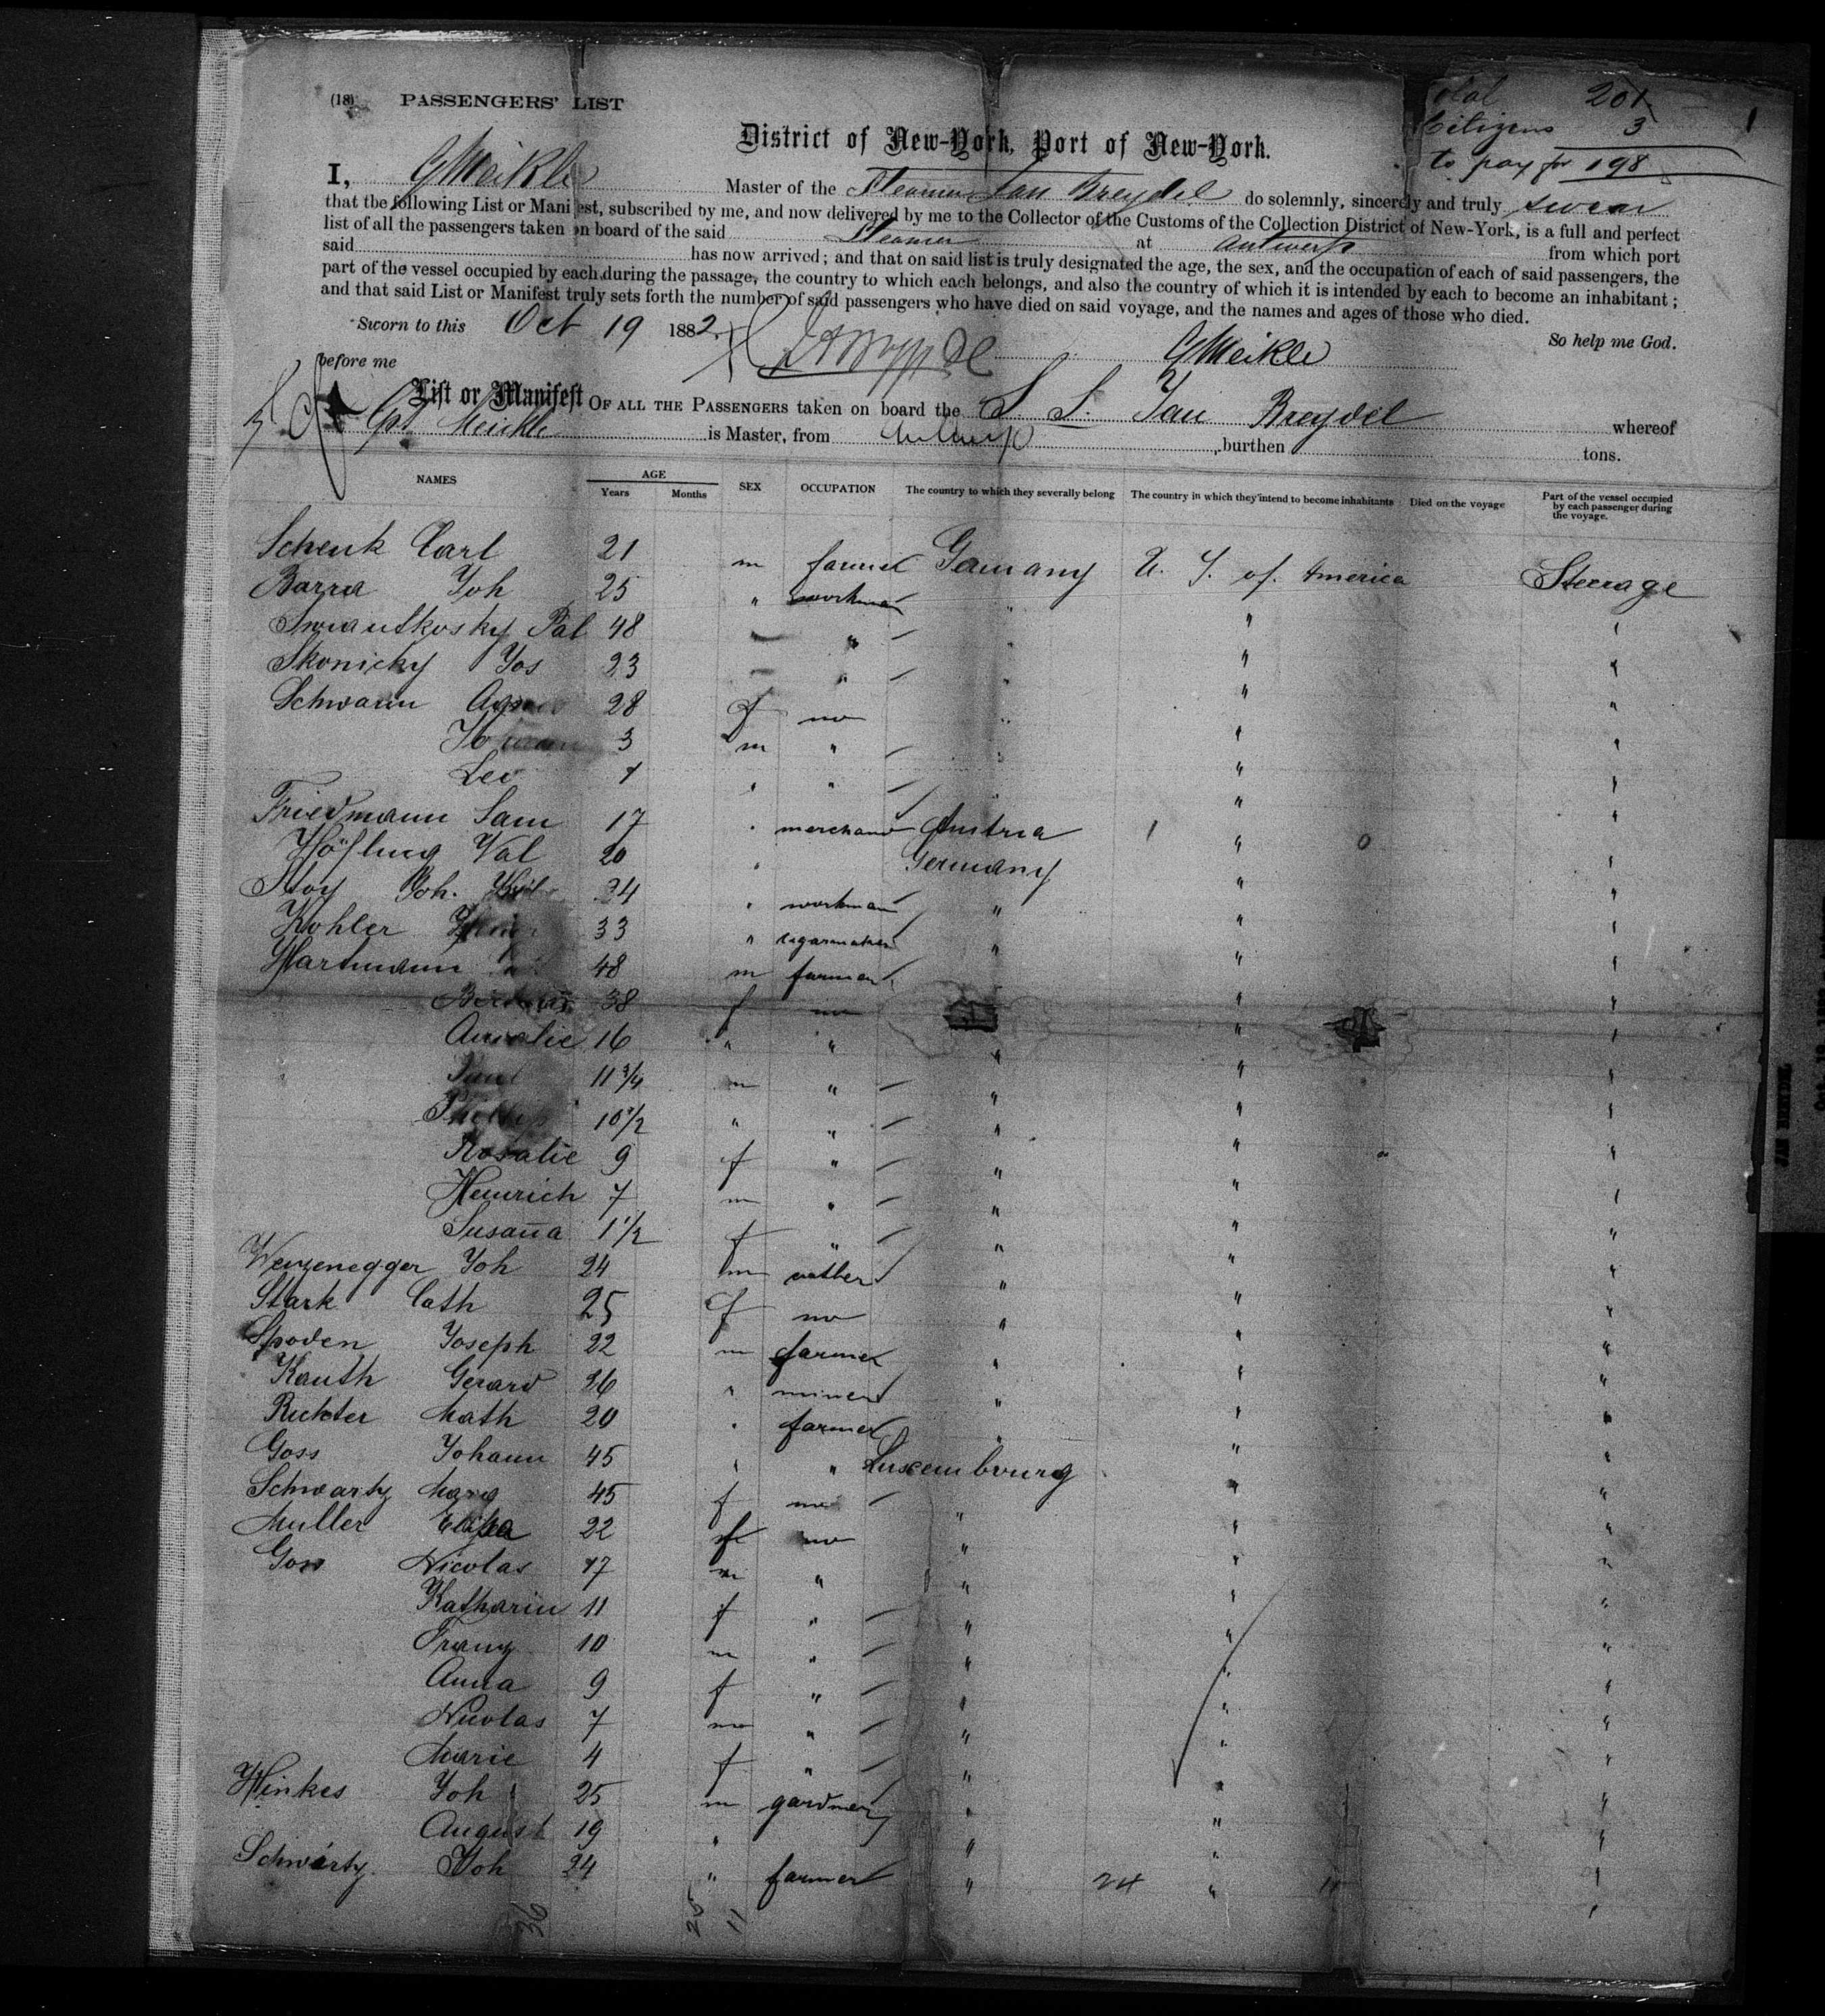 (18) PASSENGERS' LIST
Total 201
Citizens 3
to pay for 198
1
District of New-York, Port of New-York.
I, G Meikle Master of the Steamer Jan Breydel do solemnly, sincerely and truly swear
that the following List or Manifest, subscribed by me, and now delivered by me to the Collector of the Customs of the Collection District of New-York, is a full and perfect
list of all the passengers taken on board of the said Steamer at Antwerp from which port
said has now arrived; and that on said list is truly designated the age, the sex, and the occupation of each of said passengers, the
part of the vessel occupied by each during the passage, the country to which each belongs, and also the country of which it is intended by each to become an inhabitant;
and that said List or Manifest truly sets forth the number of said passengers who have died on said voyage, and the names and ages of those who died.
Sworn to this Oct 19 1882 So help me God.
before me G Meikle
List or Manifest OF ALL THE PASSENGERS taken on board the S. S. Jan Breydel whereof
Cpt Meikle is Master, from Antwerp, burthen tons.
NAMES AGE Years Months SEX OCCUPATION The country to which they severally belong The country in which they intend to become inhabitants Died on the voyage Part of the vessel occupied by each passenger during the voyage.
Schenk Carl 21 m farmer Germany U. S. of America Steerage
Barra Joh 25 " workman " " "
Pal 48 " " " " "
Skonicky Jos 23 " " " " "
Schwann 28 f no " " "
3 m " " " "
Leo 1 " " " " "
Friedmann Sam 17 " merchand Austria 1 " 0 "
Höfling Val 20 " Germany " "
Stoy Joh. 34 " workman " " "
Kohler 33 " cigarmaker " " "
Hartmann 48 m farmer " "
38 f no " "
Amalie 16 " " " " "
11 3/4 m " " " "
Phillip 10 1/2 " " " " "
Rosalie 9 f " " " "
Heinrich 7 m " " " "
Susaña 1 1/2 f " " " "
Weizenegger Joh 24 m " " "
Stark Cath 25 f no " " "
Spoden Joseph 22 m farmer " " "
Kauth Gerard 26 " miner " " "
Richter Math 20 " farmer " " "
Goss Johann 45 " " Luxembourg " "
Schwartz 45 f no " " "
Muller 22 f no " " "
Goss Nicolas 17 m " " " "
Katharin 11 f " " " "
Franz 10 m " " " "
Anna 9 f " " " "
Nicolas 7 m " " " "
Marie 4 f " " " "
Hinkes Joh 25 m gardner " " "
August 19 " " " "
Schwartz Joh 24 " farmer " 24 " 11 "
36 25 11